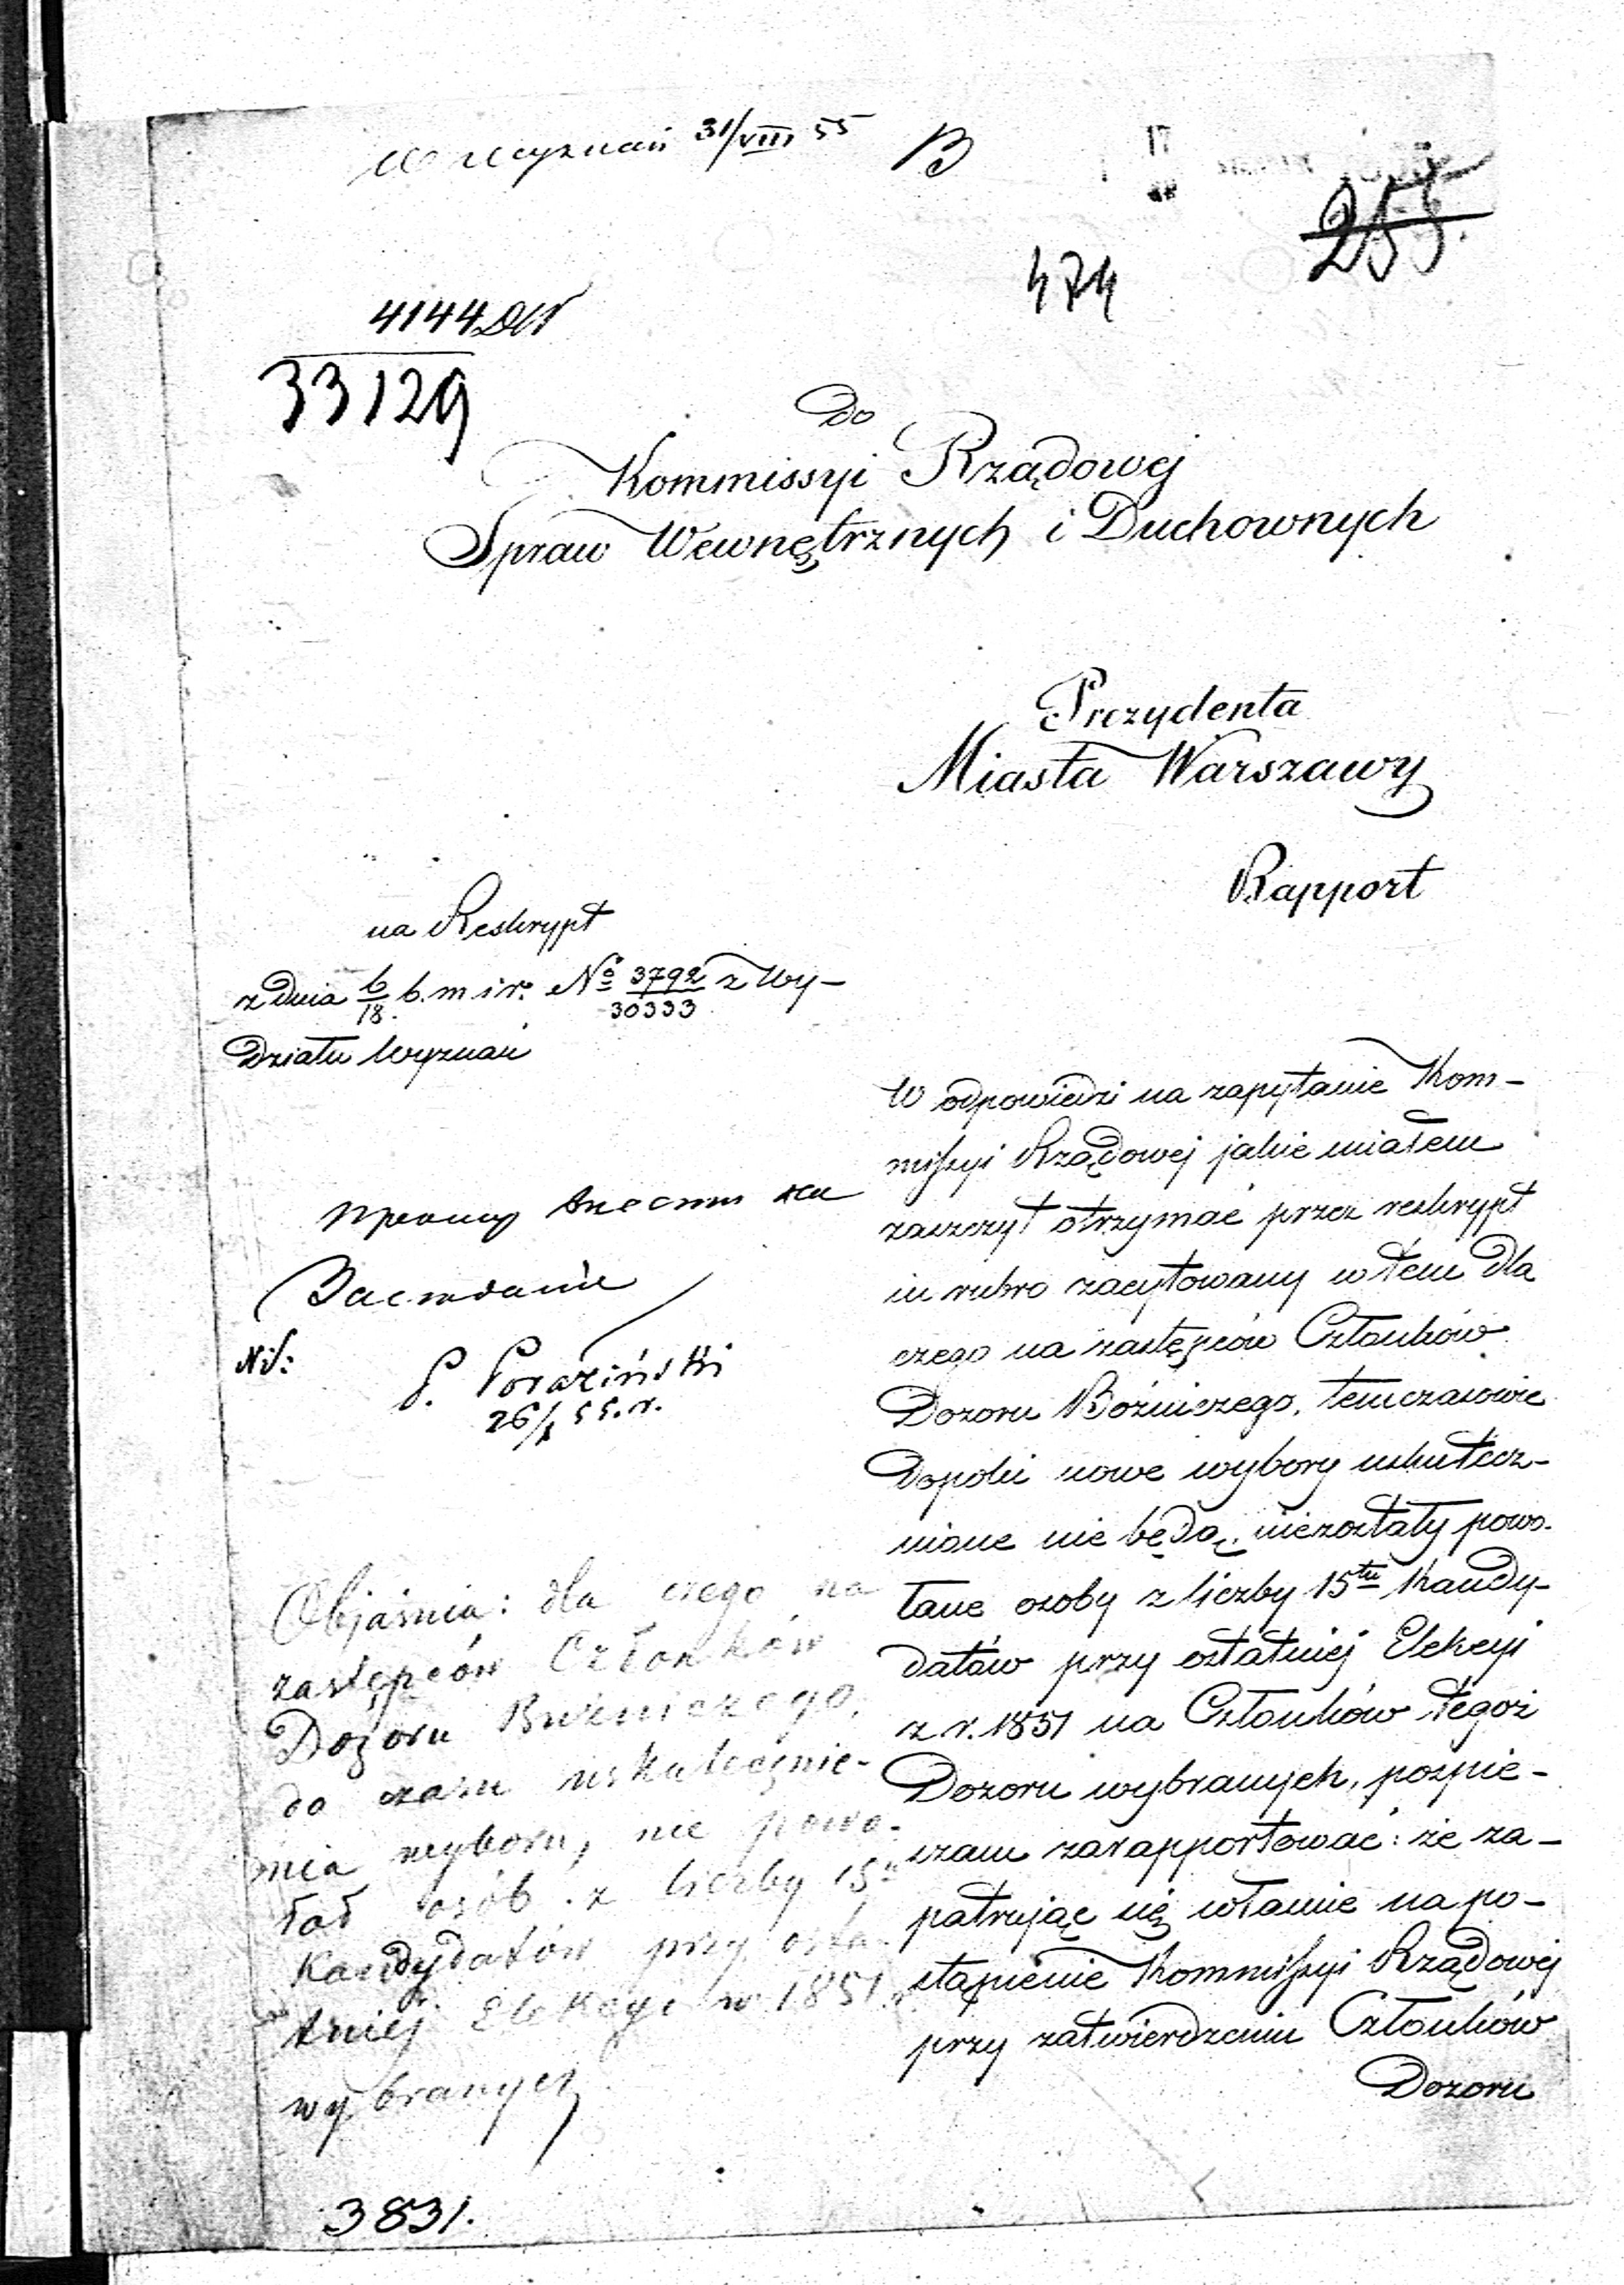 Wyznań 31/VIII 55
B
255.
474
4144 DW
33129
Do
Kommissyi Rządowej
Spraw Wewnętrznych i Duchownych
Prezydenta
Miasta Warszawy
Rapport
na Reskrypt
z dnia 6/18 b. m i r. No 3792/30333 z Wy-
działu Wyznań
W odpowiedzi na zapytanie Kom-
missyi Rządowej jakie miałem
zaszczyt otrzymać przez reskrypt
in rubro zacytowany w tem dla
czego na zastępców Członków
Dozoru Bóźniczego, temczasowie
dopóki nowe wybory uskutecz-
nione nie będą, niezostały powo-
łane osoby z liczby 15tu Kandy-
datów przy ostatniej Elekcyi
z r. 1851 na Członków tegoż
Dozoru wybranych, pospie-
szam zarapportować: że za-
patrując się właśnie na po-
stąpienie Kommissyi Rządowej
przy zatwierdzeniu Członków
Dozoru
P. Poraziński
55. r.
Objaśnia: dla czego na
zastępców Członków
Dozoru Bużniczego,
do czasu uskutecznie-
nia wyboru, nie powo-
łał osób z liczby 15u
Kandydatów przy osta-
tniej Elekcyi w 1851 r
wybranych
3831.